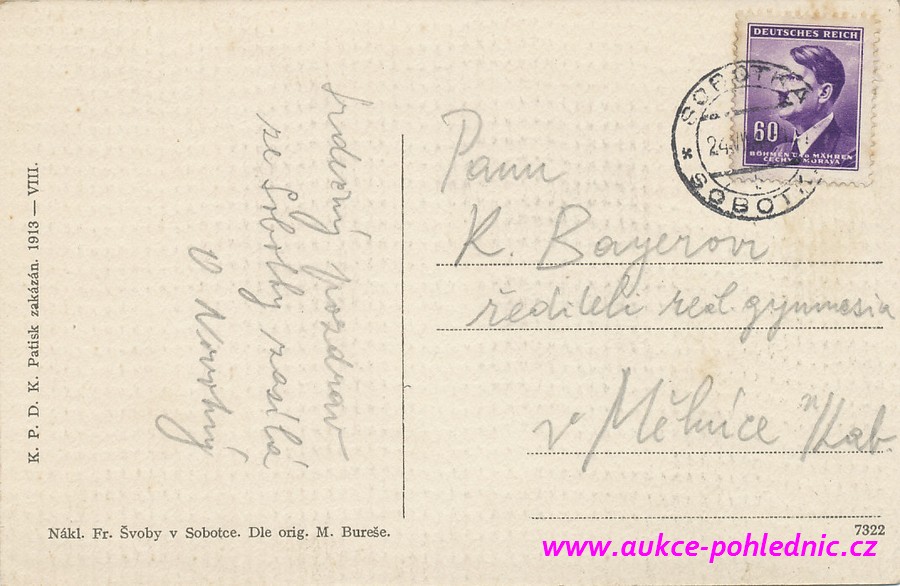 K. P. D. K. Patisk zakázán. 1913 — VIII.
Srdečný pozdrav
ze Sobotky zasílá
V Novotný
DEUTSCHES REICH
60
BÖHMEN UND MÄHREN
ČECHY A MORAVA
SOBOTKA
24.VII
* SOBOTKA
Panu
K. Bayerovi
řediteli reál. gymnasia
v Mělníce n/Lab.
Nákl. Fr. Švoby v Sobotce. Dle orig. M. Bureše.
7322
www.aukce-pohlednic.cz